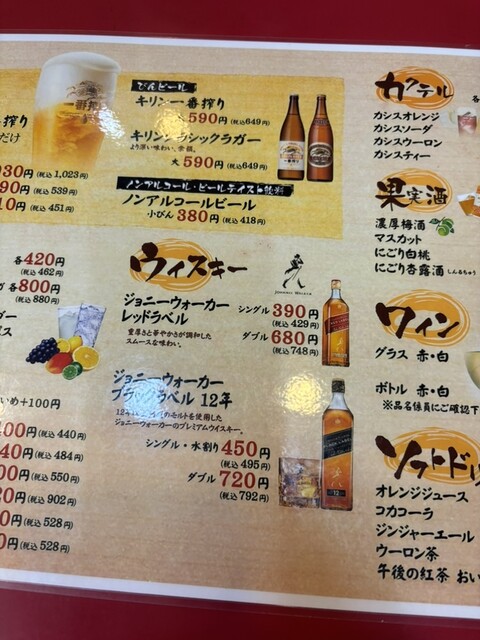 一番搾り
搾り
だけ
930円(税込1,023円)
90円(税込539円)
10円(税込451円)
びんビール
キリン一番搾り
大590円(税込649円)
キリンクラシックラガー
より深い味わい、余韻。
大590円(税込649円)
ノンアルコール・ビールテイスト飲料
ノンアルコールビール
小びん380円(税込418円)
各420円
(税込462円)
各800円
(税込880円)
いめ+100円
400円(税込440円)
40円(税込484円)
00円(税込550円)
20円(税込902円)
0円(税込528円)
0円(税込528円)
ウィスキー
JOHNNIE WALKER
ジョニーウォーカー
レッドラベル
豊厚さと華やかさが調和した
スムースな味わい。
シングル390円
(税込429円)
ダブル680円
(税込748円)
ジョニーウォーカー
ブラックラベル 12年
モルトを使用した
ジョニーウォーカーのプレミアムウイスキー。
シングル・水割り450円
(税込495円)
ダブル720円
(税込792円)
カクテル
各
カシスオレンジ
カシスソーダ
カシスウーロン
カシスティー
果実酒
濃厚梅酒
マスカット
にごり白桃
にごり杏露酒しんるちゅう
ワイン
グラス 赤・白
ボトル 赤・白
※品名係員にご確認下
ソフトドリ
オレンジジュース
コカコーラ
ジンジャーエール
ウーロン茶
午後の紅茶 おい